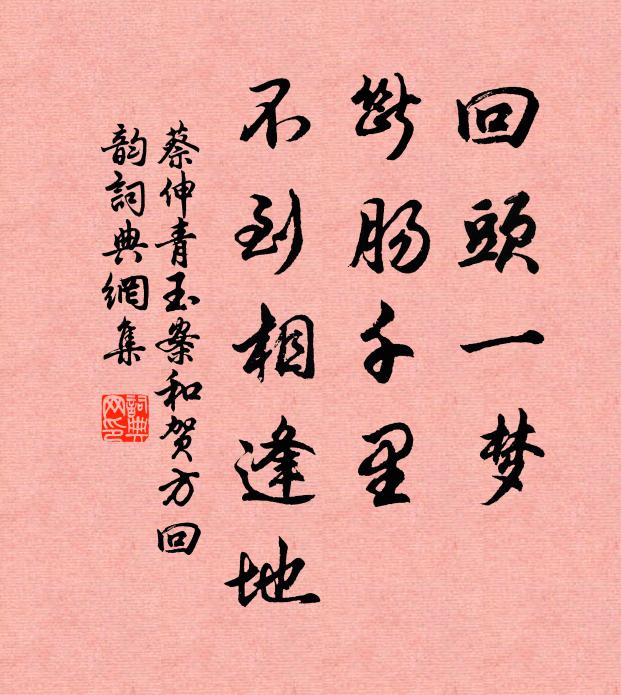 回頭一梦
斷肠千里
不到相逢地
蔡伸青玉案和贺方回
韵詞典網集
詞典
网印